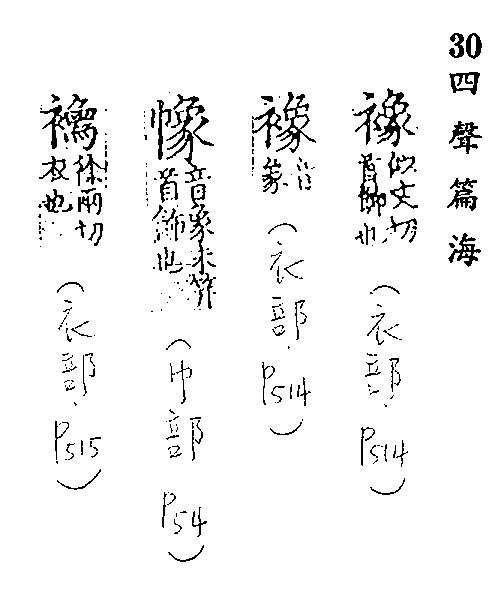 30四聲篇海
襐似丈切首飾也(衣部.P514)
襐音象(衣部.P514)
㡧音象未笄首飾也(巾部P54)
徐兩切衣也(衣部.P515)